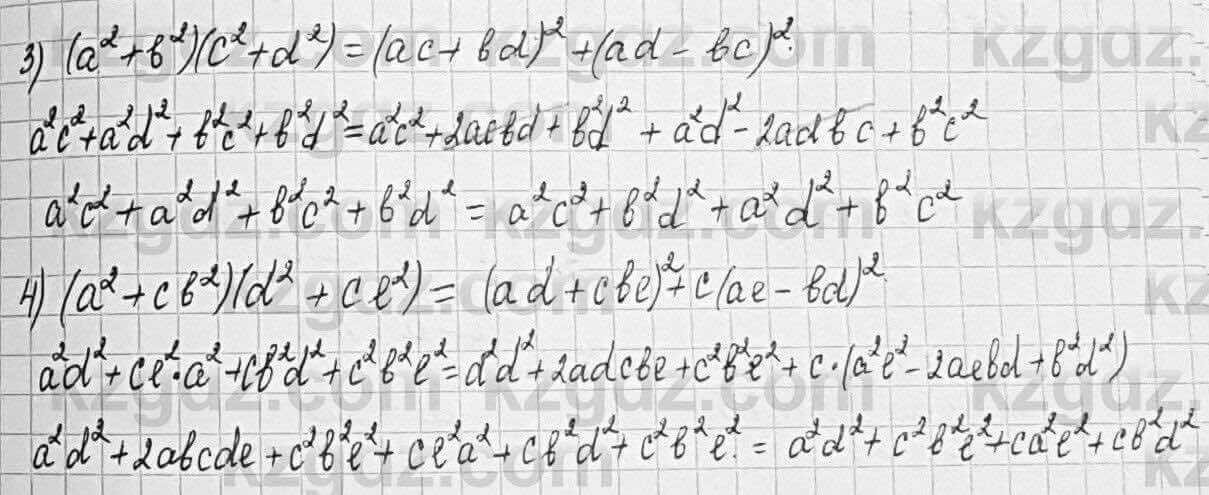 3) (a²+b²)(c²+d²)=(ac+bd)²+(ad-bc)².
a²c²+a²d²+b²c²+b²d²=a²c²+2acbd+b²d²+a²d²-2adbc+b²c²
a²c²+a²d²+b²c²+b²d²=a²c²+b²d²+a²d²+b²c²
4) (a²+cb²)(d²+ce²)=(ad+cbe)²+c(ae-bd)².
a²d²+ce²·a²+cb²d²+c²b²e²=d²d²+2adcbe+c²b²e²+c·(a²e²-2aebd+b²d²)
a²d²+2abcde+c²b²e²+ce²a²+cb²d²+c²b²e².=a²d²+c²b²e²+ca²e²+cb²d²
kzgdz.com